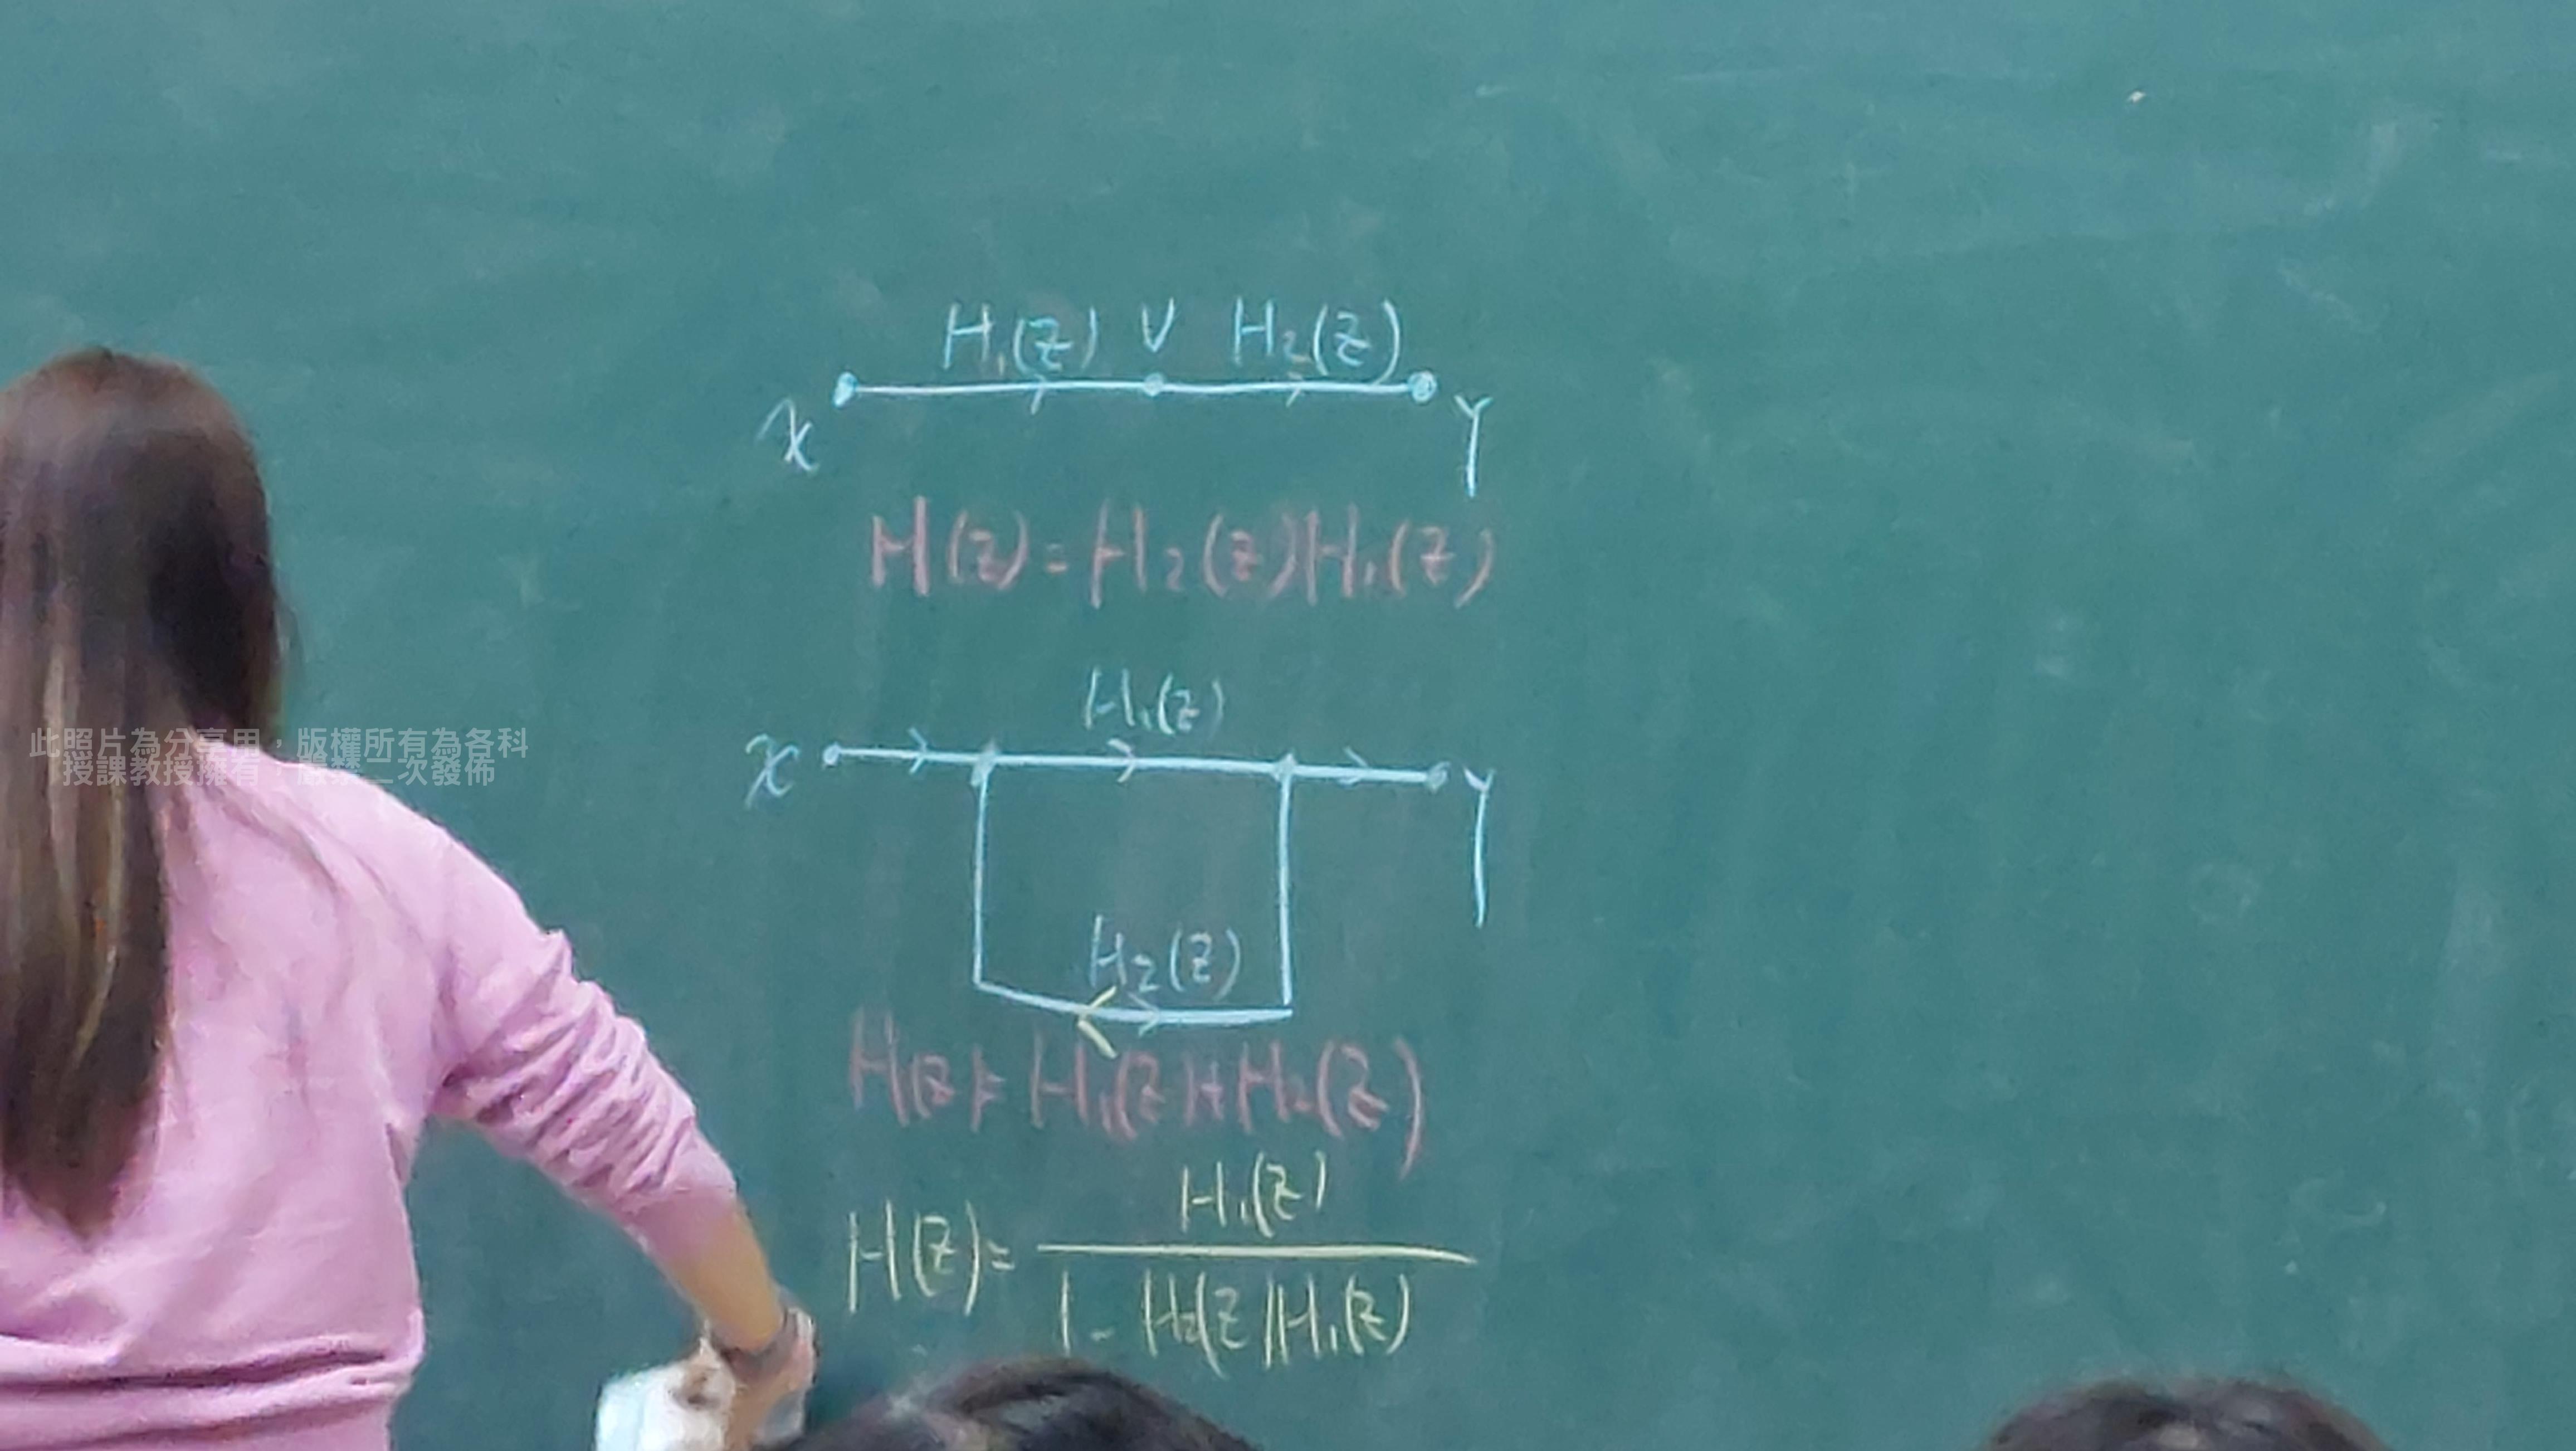 H₁(z) V H₂(z)
x Y
H(z) = H₂(z)H₁(z)
H₁(z)
x Y
H₂(z)
H(z) = H₁(z) + H₂(z)
H(z) = H₁(z) / 1 - H₂(z)H₁(z)
此照片為分享用，版權所有為各科
授課教授擁有，嚴禁二次發佈